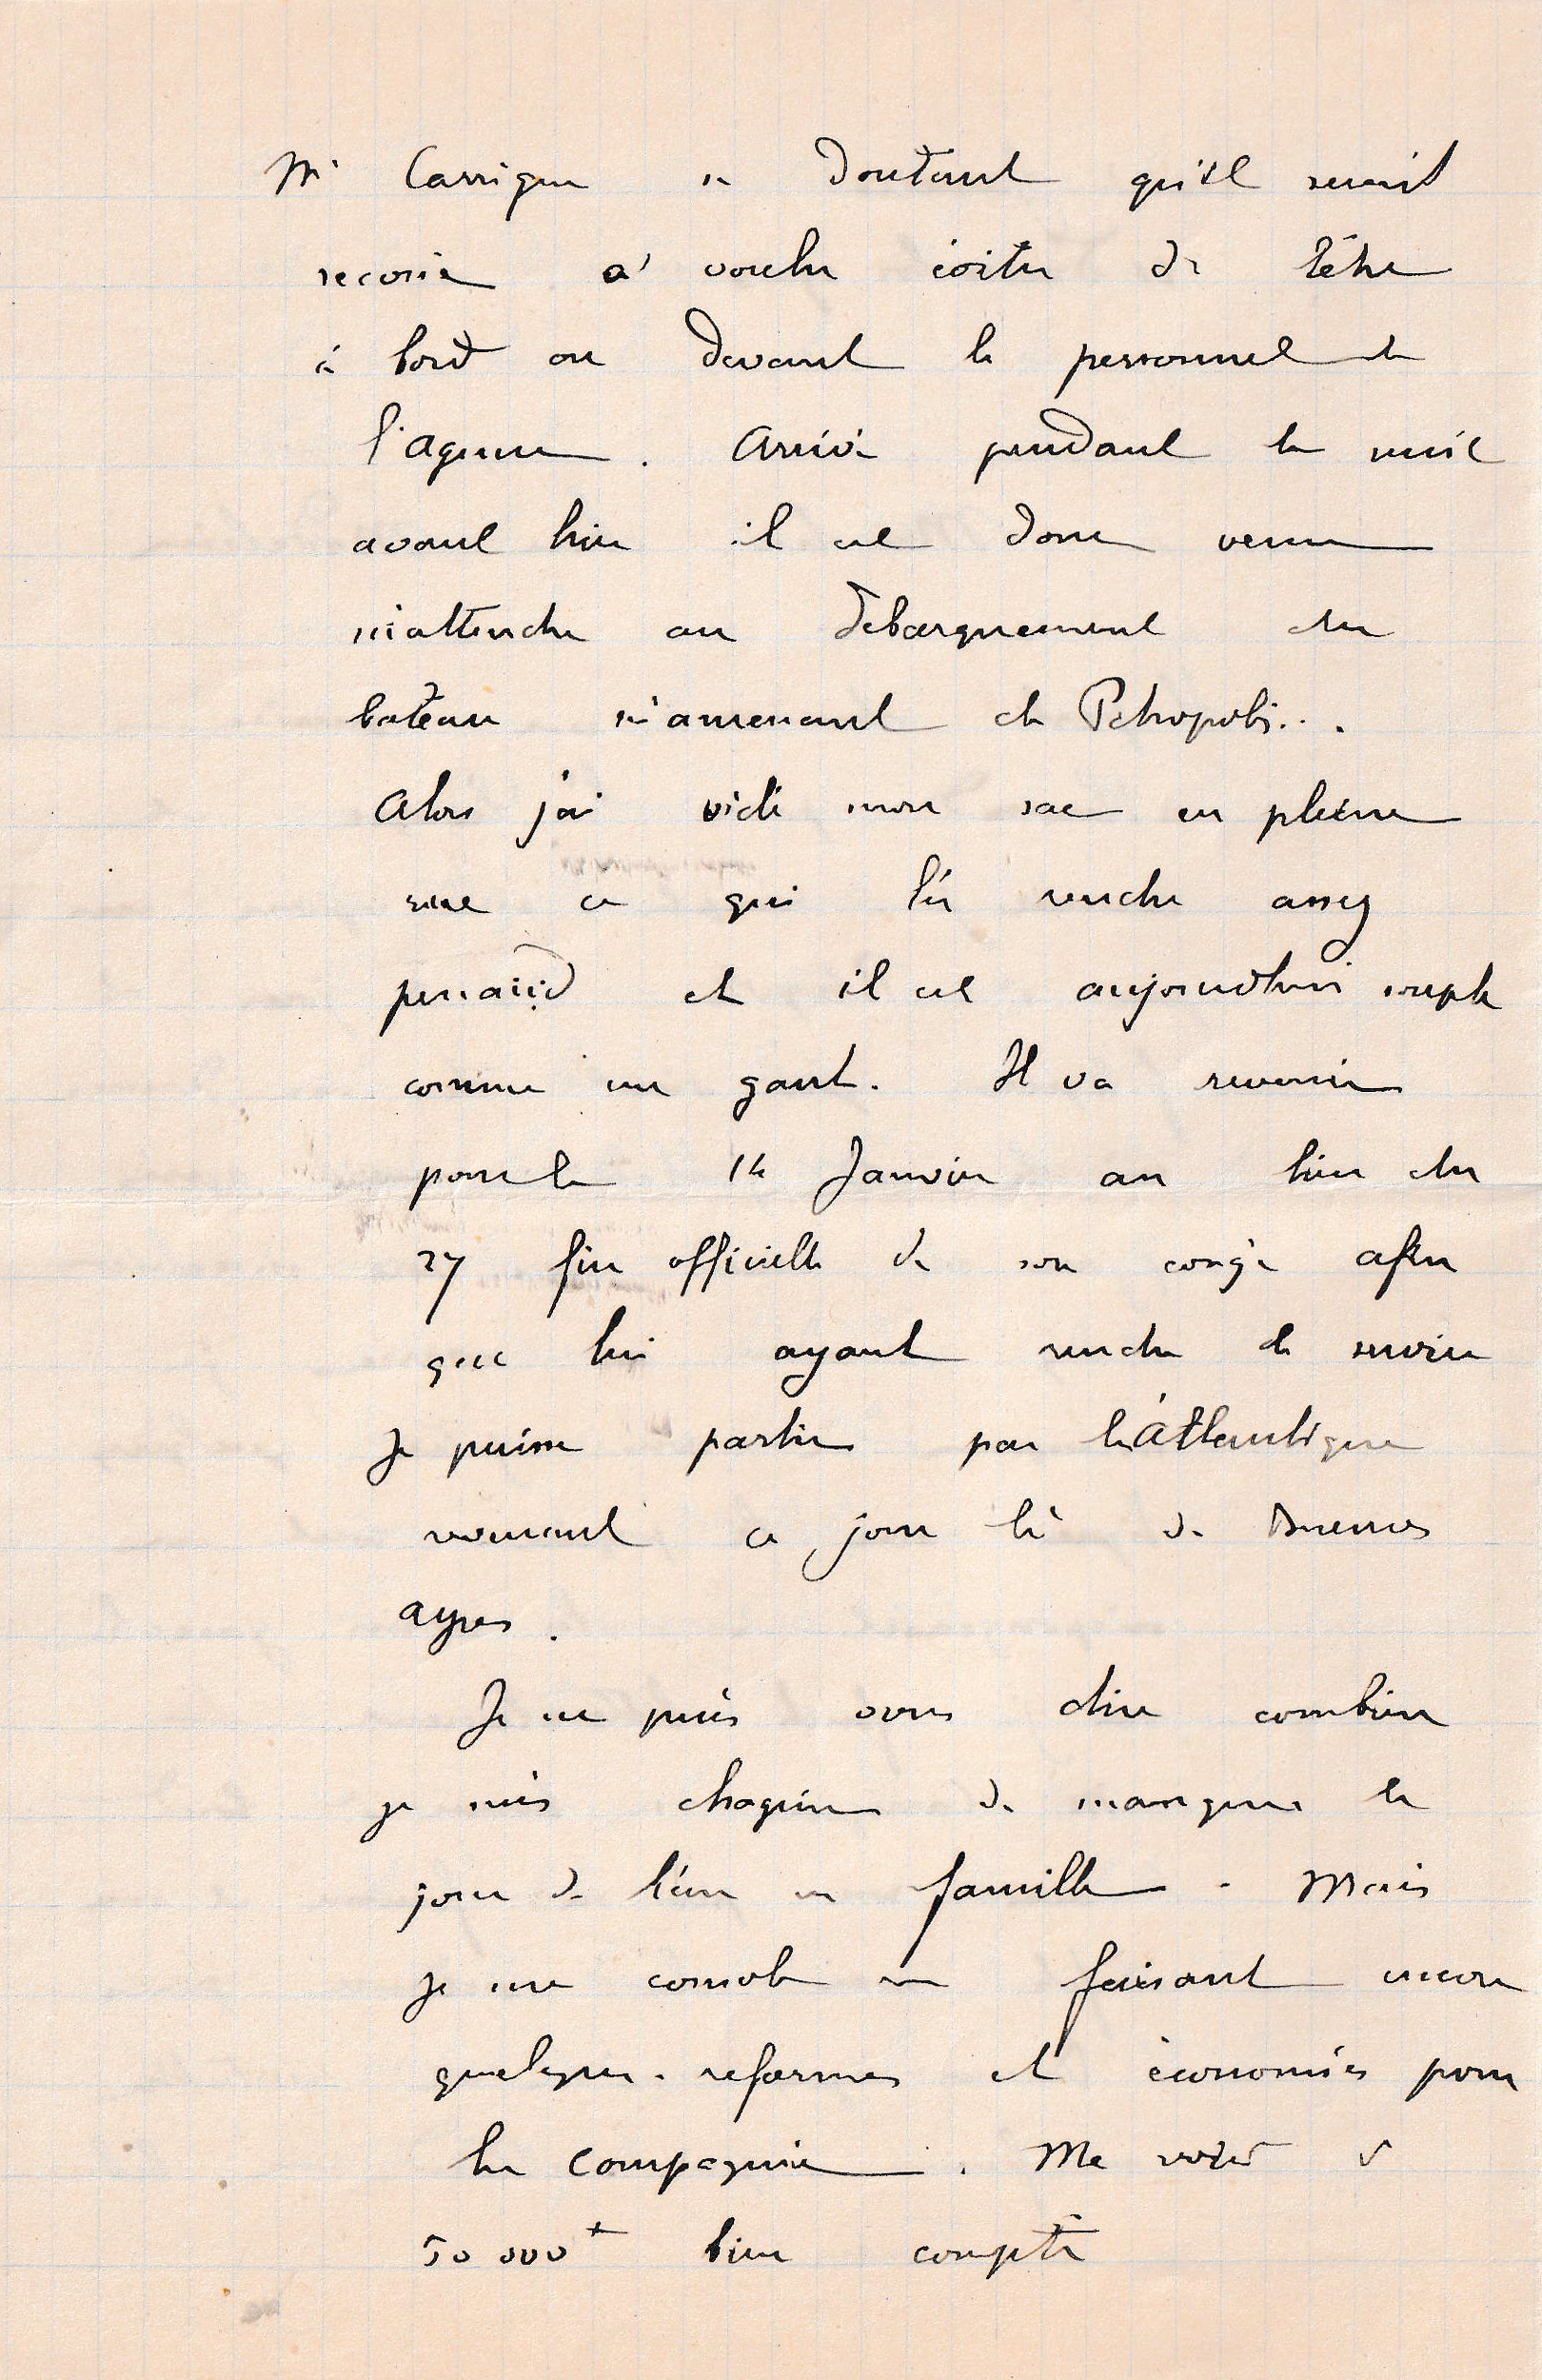 Mr Carrigue se doutant qu'il serait
secoué a voulu éviter de l'être
à bord ou devant le personnel de
l'agence. Arrivé pendant la nuit
avant hier il est donc venu
m'attendre au débarquement du
bateau m'amenant de Petropolis...
Alors j'ai vidé mon sac en pleine
rue ce qui l'a rendu assez
penaud et il est aujourd'hui souple
comme un gant. Il va revenir
pour le 14 Janvier au lieu du
27 fin officielle de son congé afin
que lui ayant rendu le service
Je puisse partir par l'Atlantique
revenant ce jour là de Buenos
ayres.
Je ne puis vous dire combien
je suis chagrin de manquer le
jour de l'an en famille. Mais
je me console en faisant encore
quelques reformes et économies pour
la Compagnie. Me voici à
50 000 f bien compté